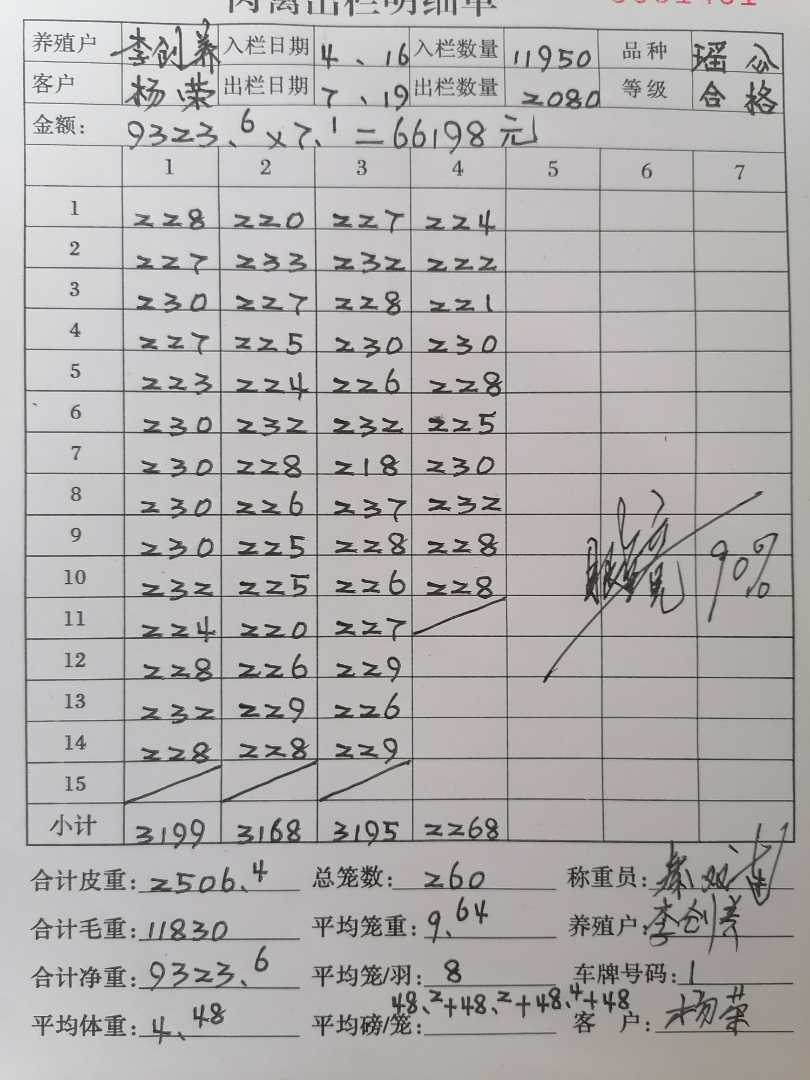 肉禽出栏明细单
养殖户 李剑养 入栏日期 4、16 入栏数量 11950 品种 瑶公
客户 杨荣 出栏日期 7、19 出栏数量 2080 等级 合格
金额: 9323.6×7.1=66198元
1 2 3 4 5 6 7
1 228 220 227 224
2 227 233 232 222
3 230 227 228 221
4 227 225 230 230
5 223 224 226 228
6 230 232 232 225
7 230 228 218 230
8 230 226 237 232
9 230 225 228 228
10 232 225 226 228
90%
11 224 220 227
12 228 226 229
13 232 229 226
14 228 228 229
15
小计 3199 3168 3195 2268
合计皮重: 2506.4 总笼数: 260 称重员:
合计毛重: 11830 平均笼重: 9.64 养殖户:
合计净重: 9323.6 平均笼/羽: 8 车牌号码: 1
平均体重: 4.48 平均磅/笼: 48.2+48.2+48.4+48 客户: 杨荣